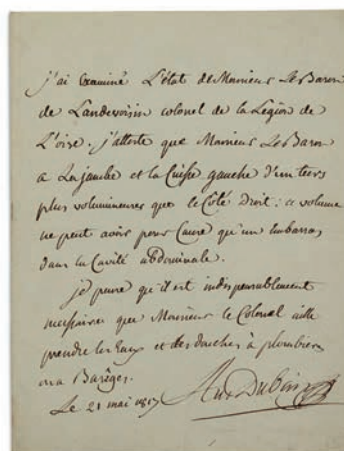 j'ai Examiné L'état de Monsieur Le Baron
de Landevoisin colonel de la Légion de
L'oise. j'atteste que Monsieur Le Baron
a La jambe et la Cuisse gauche d'un tiers
plus volumineuses que le Côté Droit : ce volume
ne peut avoir pour Cause qu'un Embarras
dans la Cavité abdominale.
je pense qu'il est indispensablement
nécessaire que Monsieur le Colonel aille
prendre les Eaux et des douches à plombières
ou a Barèges.
Le 21 mai 1817
Ant Dubois